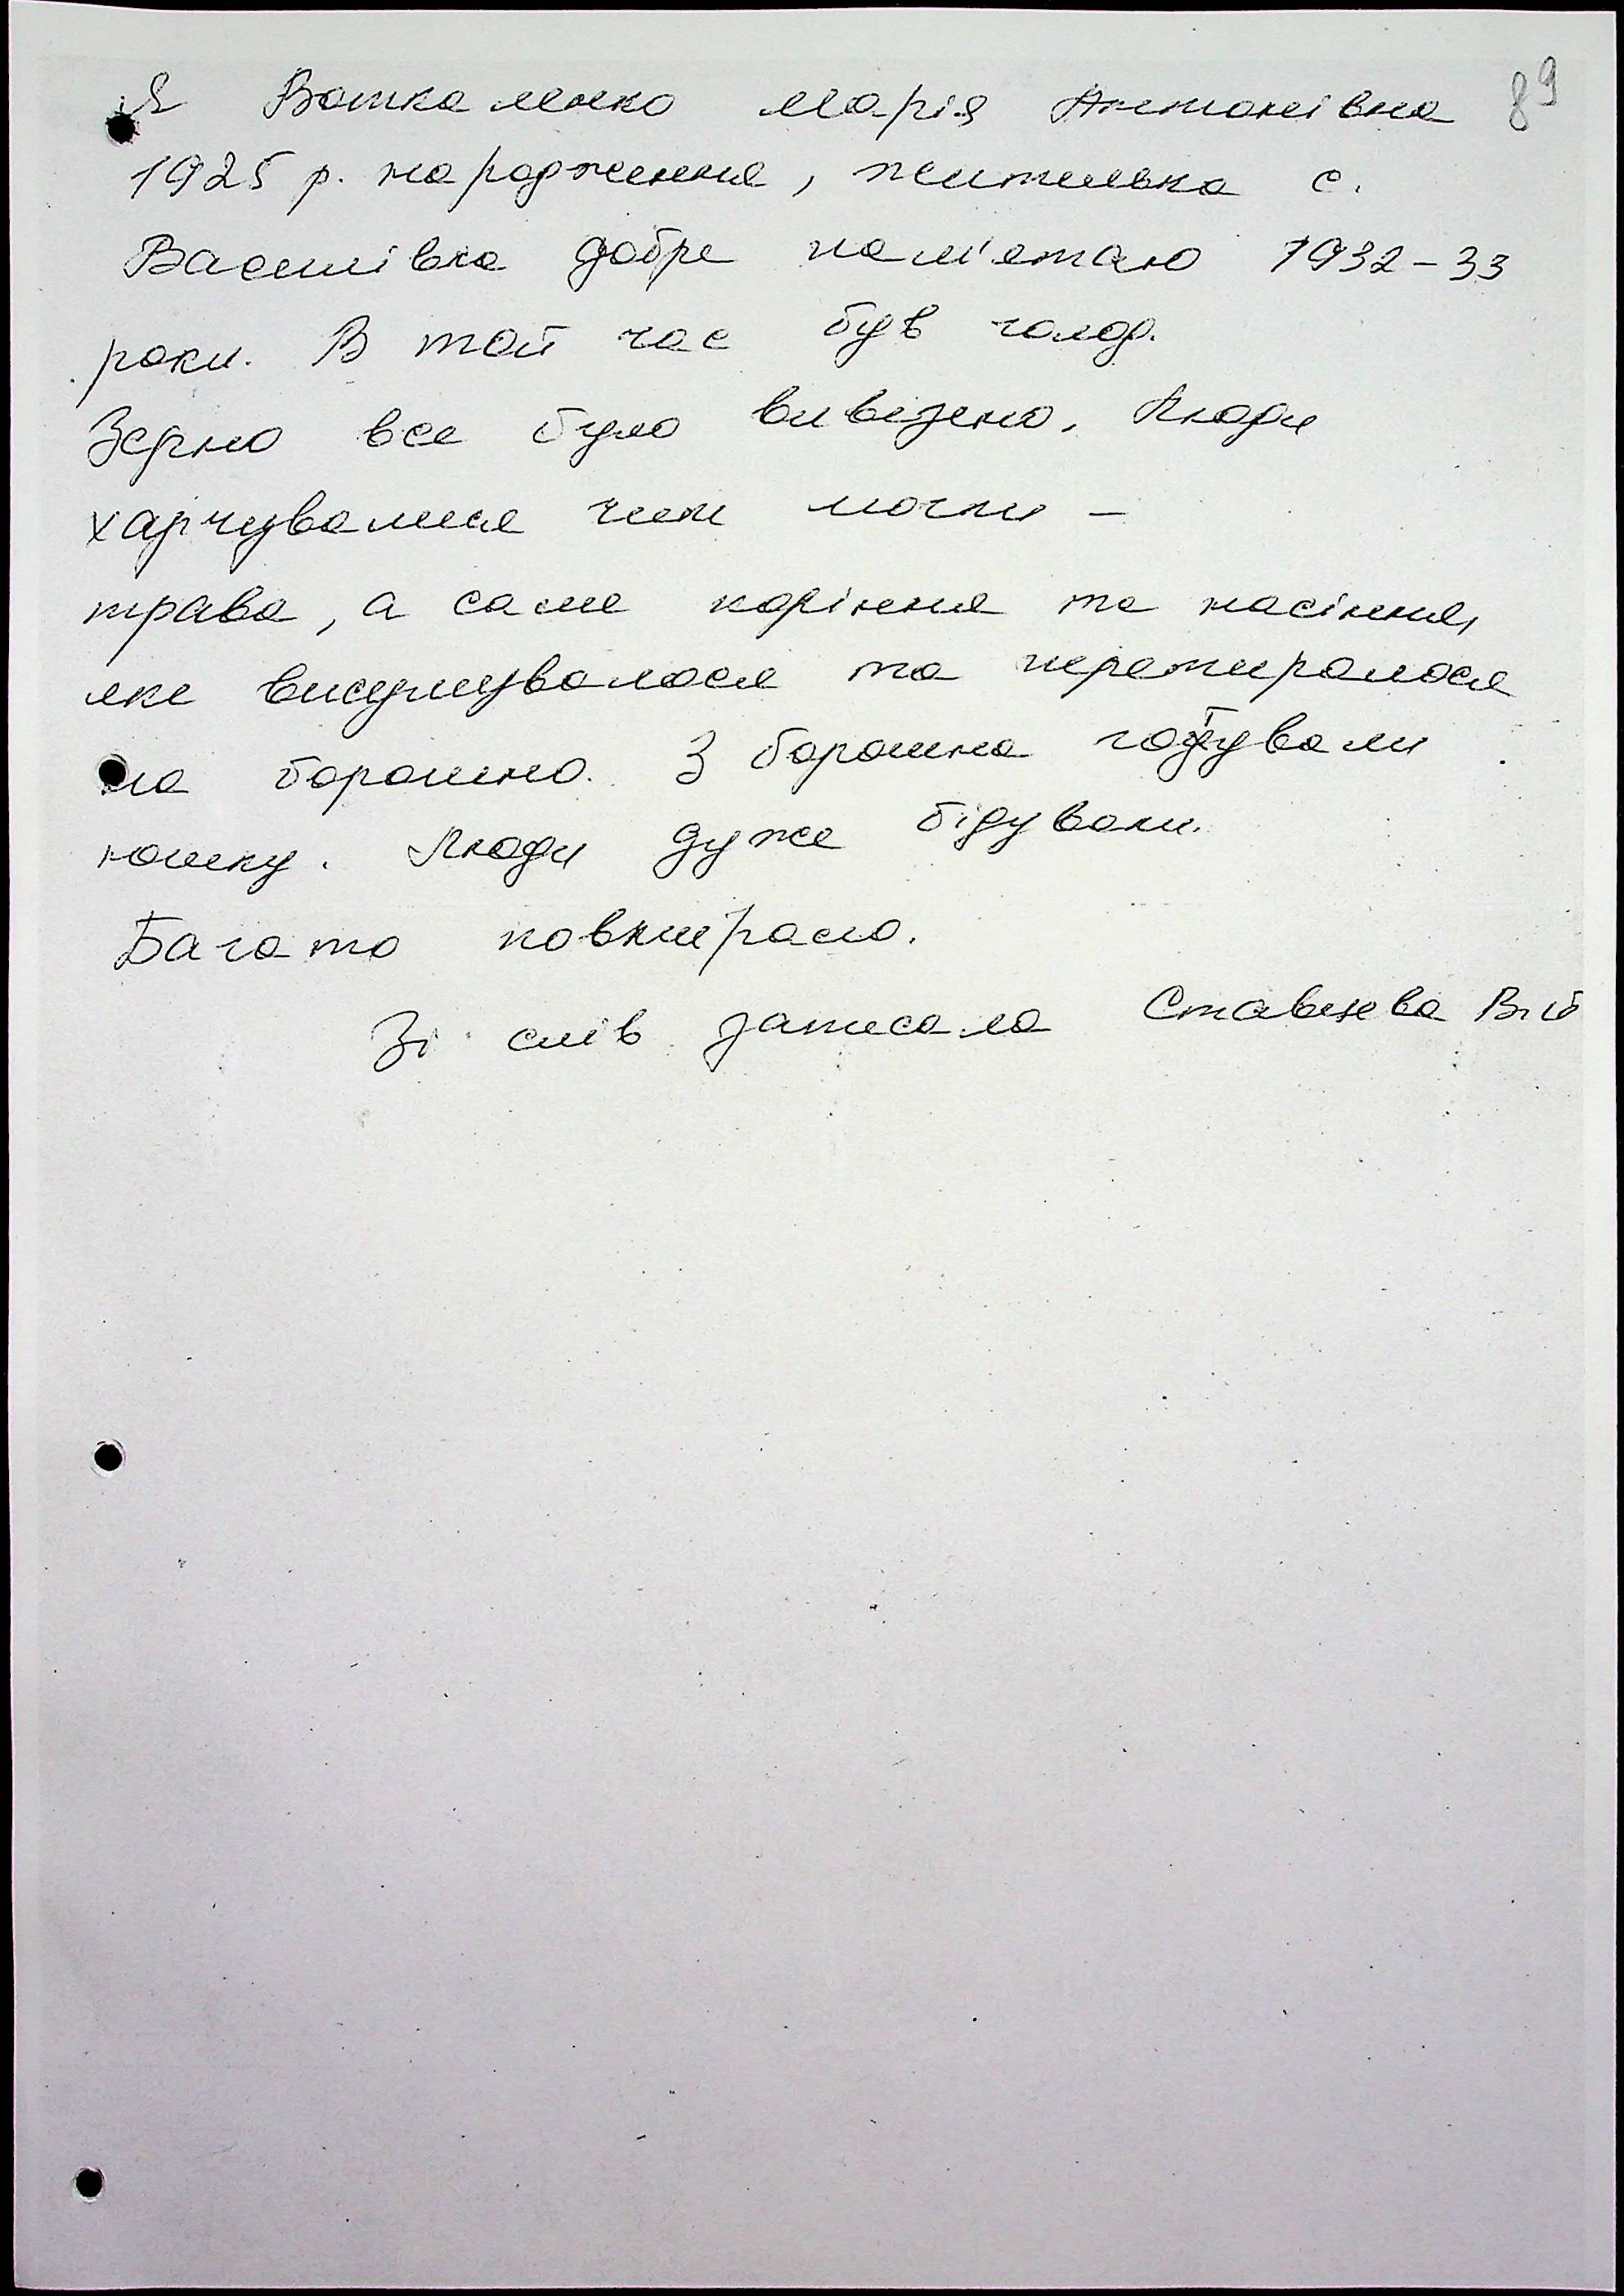 89
Я Ваткаленко Марія Антонівна
1925 р. народження, жителька с.
Василівка добре пам'ятаю 1932-33
роки. В той час був голод.
Зерно все було вивезено. Люди
харчувалися чим могли -
трава, а саме коріння та насіння,
яке висушувалося та перетиралося
на борошно. З борошна готували
юшку. Люди дуже бідували.
Багато повмирало.
Зі слів записала Ставнева